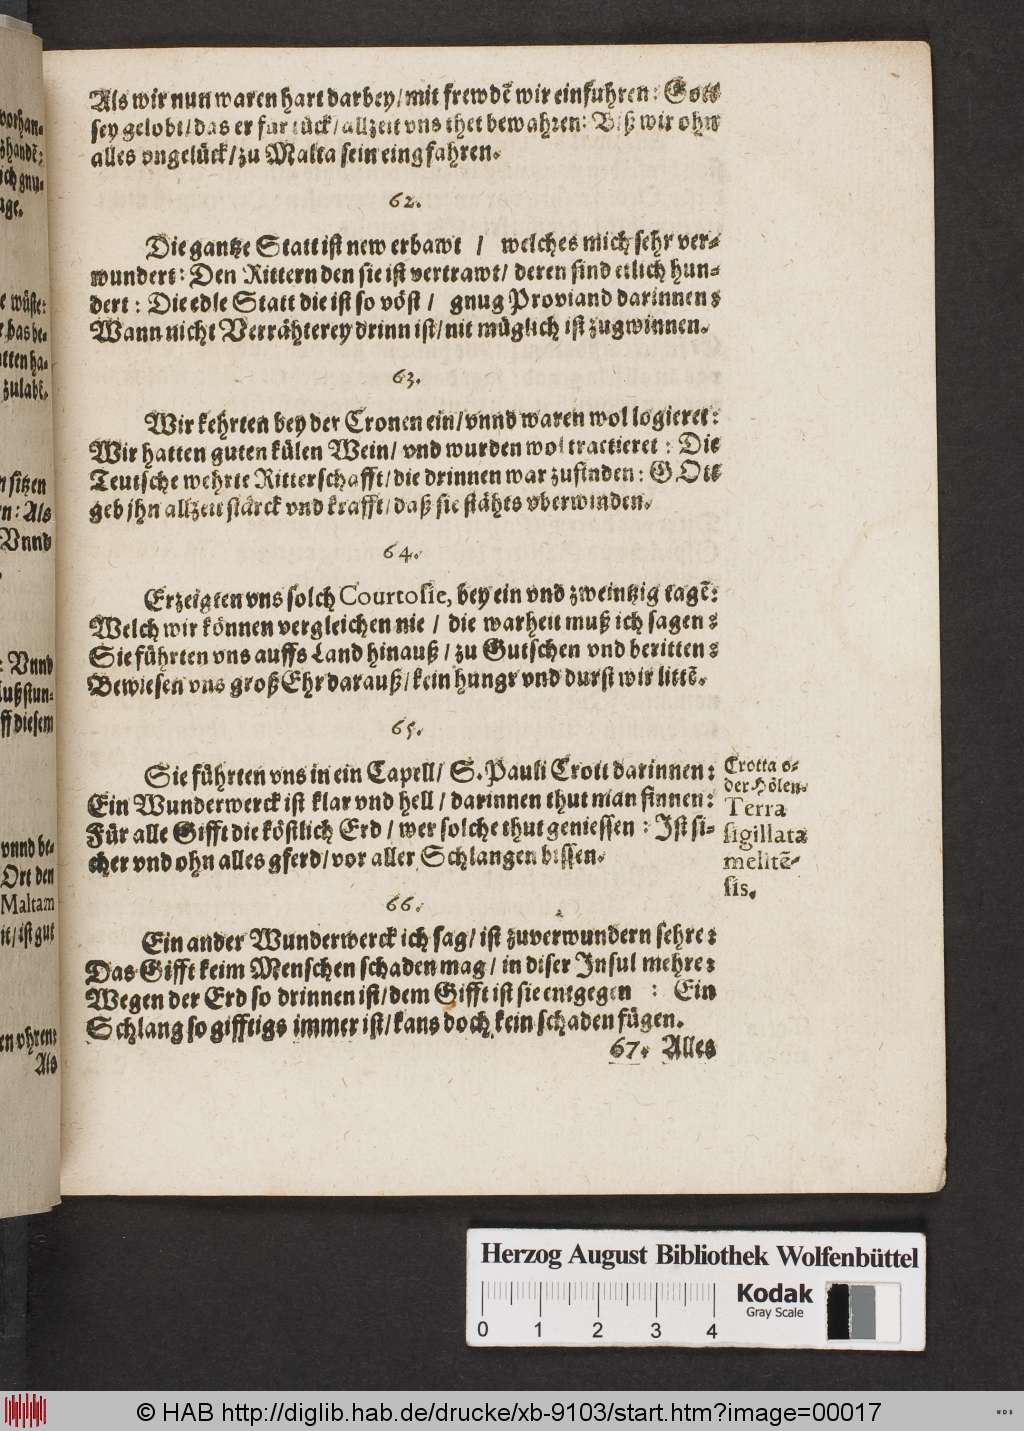 vorhan-
ich gnu-
e wüste:
r das be-
atten ha-
zulabẽ.
n sitzen
en: Als
Vnnd
: Vnnd
lußstun-
ff diesem
vnnd be-
Ort den
Maltam
it/ ist gut
en vhren:
Als
Als wir nun waren hart darbey/ mit frewdẽ wir einfuhren: Gott
sey gelobt/ das er fur tück/ allzeit vns thet bewahren: Biß wir ohn
alles vngelück/ zu Malta sein eingfahren.
62.
Die gantze Statt ist new erbawt / welches mich sehr ver-
wundert: Den Rittern den sie ist vertrawt/ deren sind etlich hun-
dert: Die edle Statt die ist so vöst / gnug Proviand darinnen:
Wann nicht Verrähterey drinn ist/ nit müglich ist zugwinnen.
63.
Wir kehrten bey der Cronen ein/ vnnd waren wol logieret:
Wir hatten guten külen Wein/ vnd wurden wol tractieret: Die
Teutsche wehrte Ritterschafft/ die drinnen war zufinden: GOtt
geb jhn allzeit stärck vnd krafft/ daß sie stähts vberwinden.
64.
Erzeigten vns solch Courtosie, bey ein vnd zweintzig tagẽ:
Welch wir können vergleichen nie / die warheit muß ich sagen:
Sie führten vns auffs Land hinauß / zu Gutschen vnd beritten:
Bewiesen vns groß Ehr darauß/ kein hungr vnd durst wir littẽ.
65.
Sie führten vns in ein Capell/ S. Pauli Crott darinnen:
Ein Wunderwerck ist klar vnd hell / darinnen thut man finnen:
Für alle Gifft die köstlich Erd / wer solche thut geniessen: Ist si-
cher vnd ohn alles gferd/ vor aller Schlangen bissen.
Crotta o-
der Hölen.
Terra
sigillata
melitẽ-
sis.
66.
Ein ander Wunderwerck ich sag/ ist zuverwundern sehre:
Das Gifft keim Menschen schaden mag / in diser Insul mehre:
Wegen der Erd so drinnen ist/ dem Gifft ist sie entgegen : Ein
Schlang so gifftigs immer ist/ kans doch kein schaden fügen.
67. Alles
Herzog August Bibliothek Wolfenbüttel
Kodak
Gray Scale
0 1 2 3 4
© HAB http://diglib.hab.de/drucke/xb-9103/start.htm?image=00017